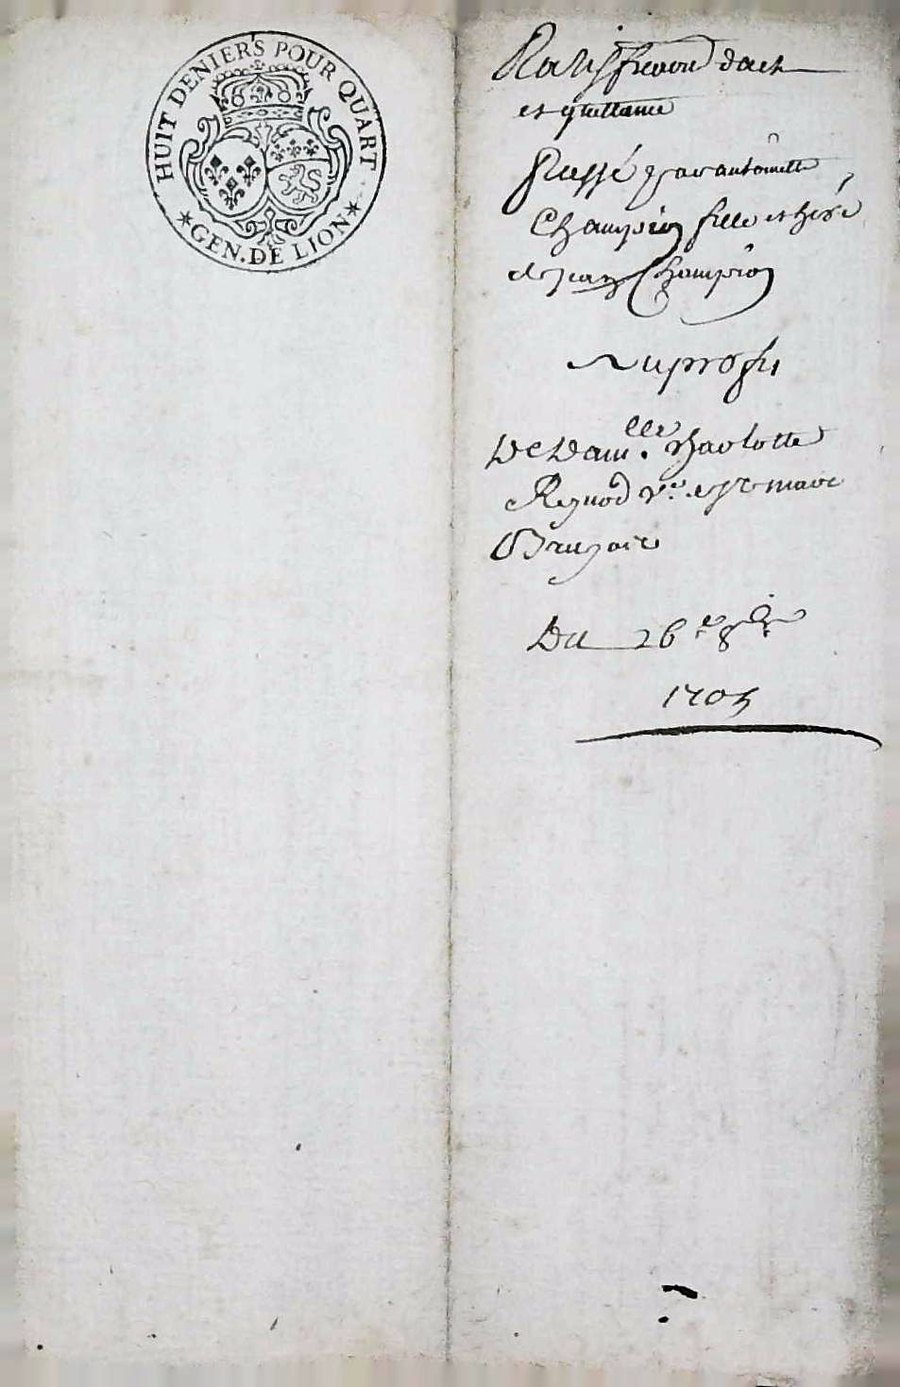 HUIT DENIERS POUR QUART
GEN. DE LION
Ratiffication dact
et quittance
Passé par antoinette
Champion fille et here
de jean Champion
Au proffit
De Dam.lle Charlotte
Reynod v.e de Sr marc
Bruyere
Du 26.e 8bre
1705